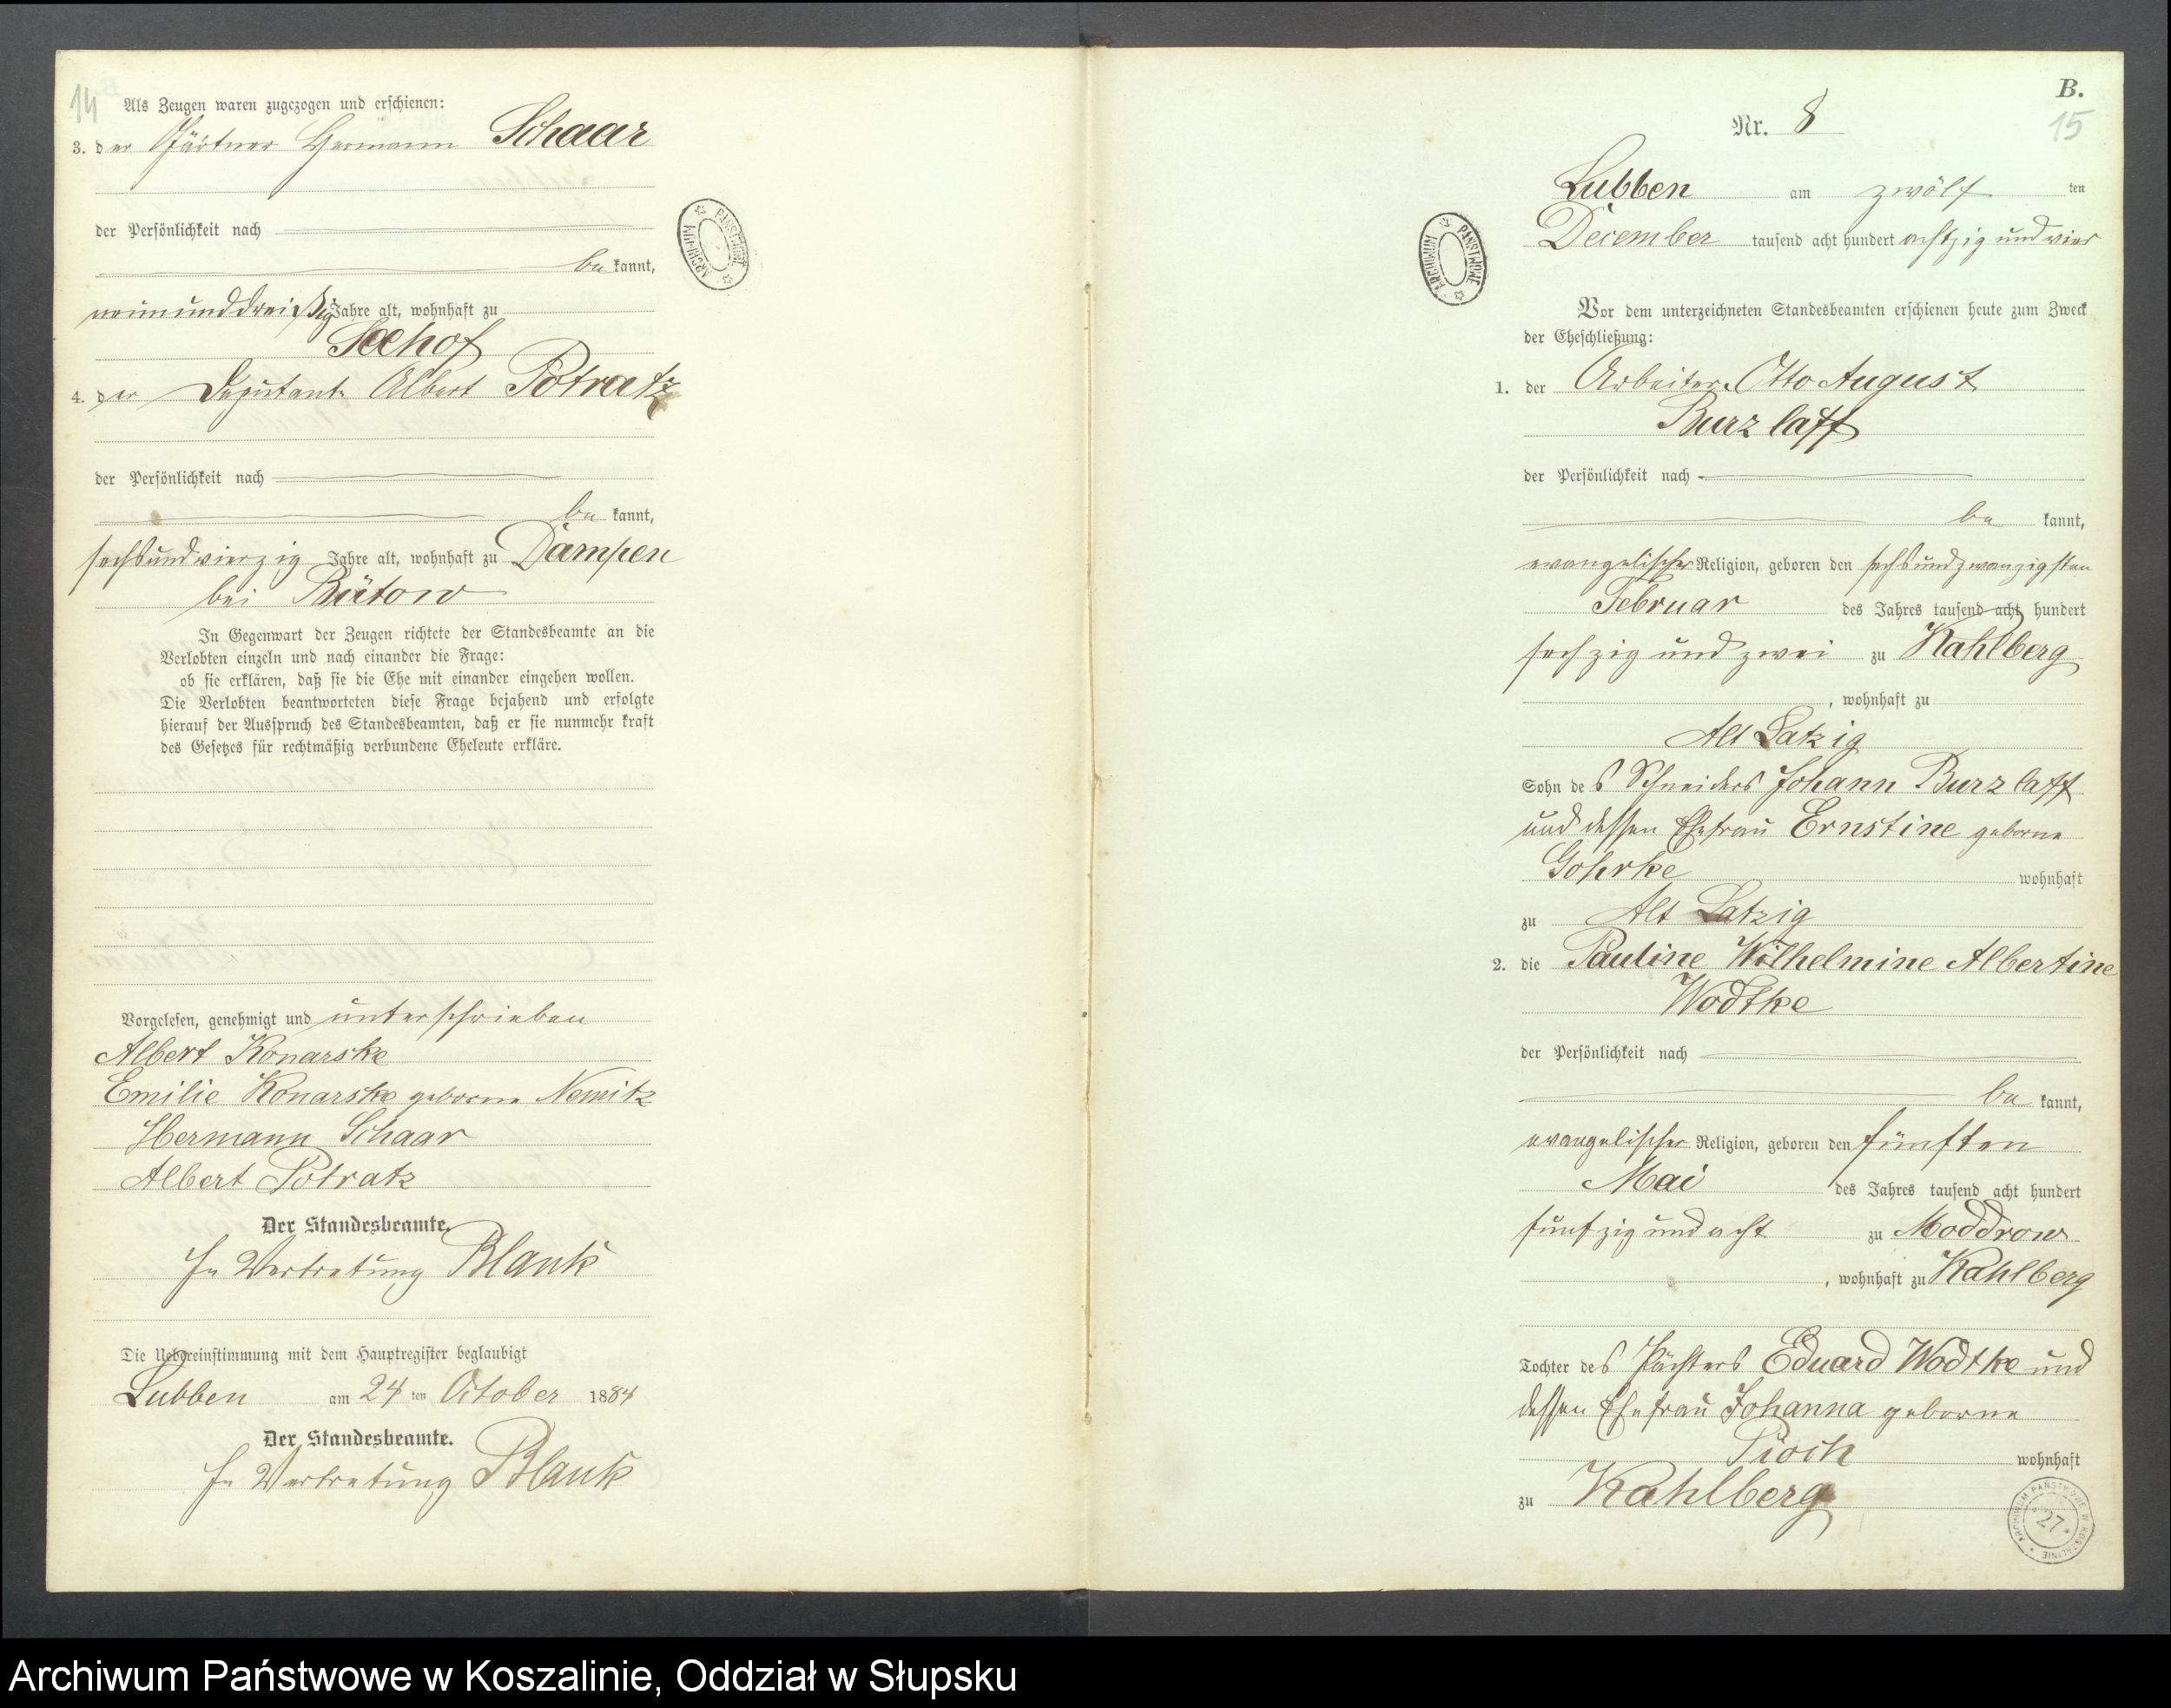 14
Als Zeugen waren zugezogen und erschienen:
3. der Gärtner Hermann Schaar
der Persönlichkeit nach
be kannt,
neununddreißig Jahre alt, wohnhaft zu
Seehof
4. der Deputant Albert Potratz
der Persönlichkeit nach
be kannt,
sechsundvierzig Jahre alt, wohnhaft zu Dampen
bei Bütow
In Gegenwart der Zeugen richtete der Standesbeamte an die
Verlobten einzeln und nach einander die Frage:
ob sie erklären, daß sie die Ehe mit einander eingehen wollen.
Die Verlobten beantworteten diese Frage bejahend und erfolgte
hierauf der Ausspruch des Standesbeamten, daß er sie nunmehr kraft
des Gesetzes für rechtmäßig verbundene Eheleute erkläre.
Vorgelesen, genehmigt und unterschrieben
Albert Konarske
Emilie Konarske geborne Nemitz
Hermann Schaar
Albert Potratz
Der Standesbeamte.
In Vertretung Blank
Die Uebereinstimmung mit dem Hauptregister beglaubigt
Lubben am 24 ten October 1884
Der Standesbeamte.
In Vertretung Blank
ARCHIWUM PAŃSTWOWE
B.
15
Nr. 8
Lubben am zwölf ten
December tausend acht hundert achtzig und vier
ARCHIWUM PAŃSTWOWE
Vor dem unterzeichneten Standesbeamten erschienen heute zum Zweck
der Eheschließung:
1. der Arbeiter Otto August
Burzlaff
der Persönlichkeit nach
be kannt,
evangelischer Religion, geboren den sechsundzwanzigsten
Februar des Jahres tausend acht hundert
sechzig und zwei zu Kahlberg
, wohnhaft zu
Alt Latzig
Sohn des Schneiders Johann Burzlaff
und dessen Ehefrau Ernstine geborne
Gohrke wohnhaft
zu Alt Latzig
2. die Pauline Wilhelmine Albertine
Wodtke
der Persönlichkeit nach
be kannt,
evangelischer Religion, geboren den fünften
Mai des Jahres tausend acht hundert
fünfzig und acht zu Moddrow
, wohnhaft zu Kahlberg
Tochter des Pächters Eduard Wodtke und
dessen Ehefrau Johanna geborne
Pioch wohnhaft
zu Kahlberg
ARCHIWUM PAŃSTWOWE W KOSZALINIE
27
Archiwum Państwowe w Koszalinie, Oddział w Słupsku